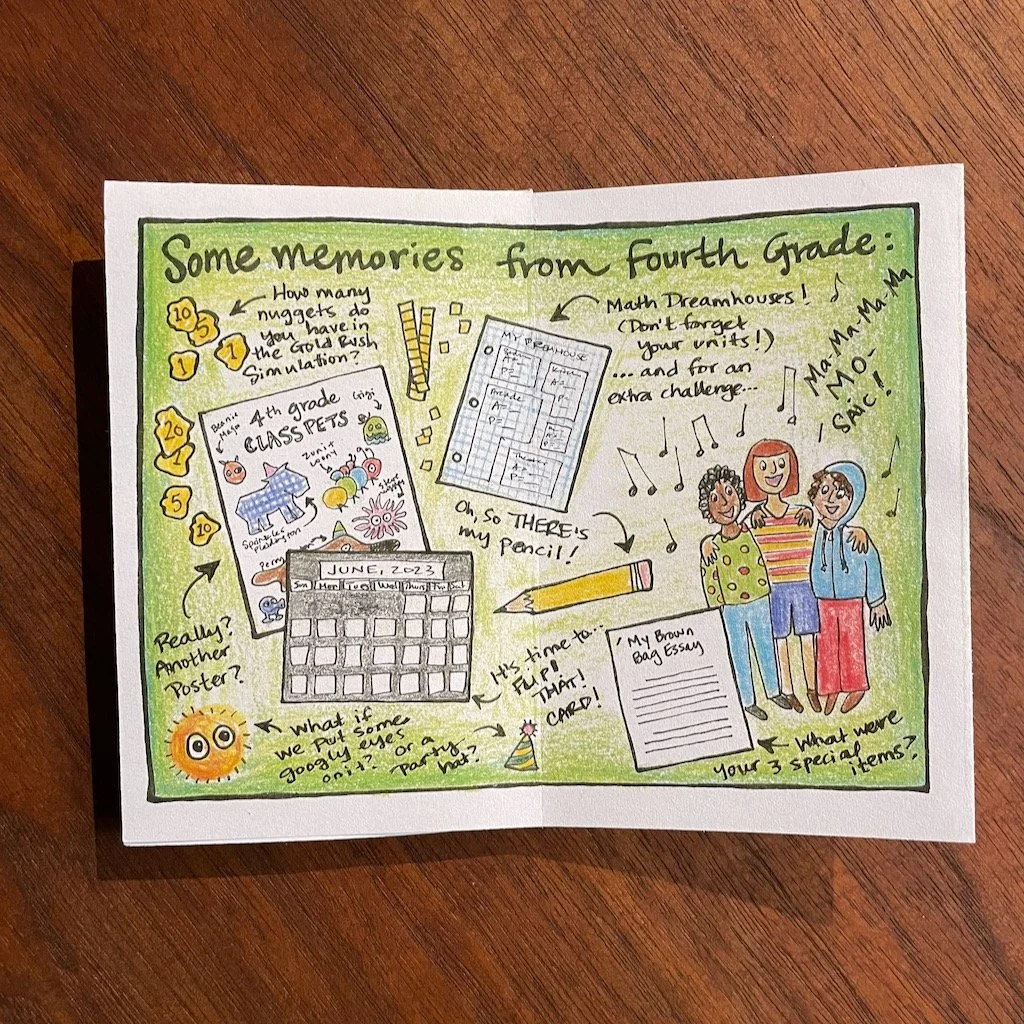 Some memories from Fourth Grade:
10
5
1
1
How many
nuggets do
you have in
the Gold Rush
Simulation?
20
1
5
10
Beanie
Magoo
4th grade
CLASS PETS
Gigi
Sprinkles
Plaidington
Perry
Really?
Another
Poster?
JUNE, 2023
Sun Mon Tues Wed Thurs Fri Sat
It's time to...
FLIP!
THAT!
CARD!
What if
we put some
googly eyes
on it?
or a
party
hat?
MY DREAMHOUSE
A=
P=
Arcade
A=
P=
Math Dreamhouses!
(Don't forget
your units!)
... and for an
extra challenge...
Ma-Ma-Ma-Ma
MO-
SAIC!
Oh, so THERE'S
my pencil!
My Brown
Bag Essay
What were
your 3 special
items?